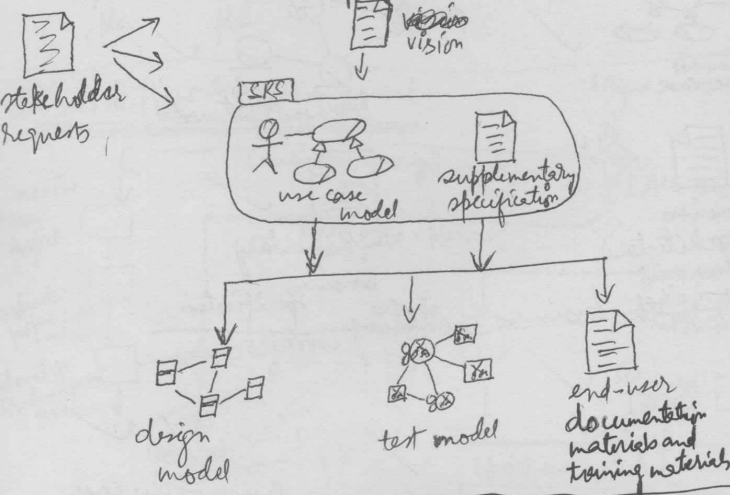 vision
stakeholder
requests
SRS
use case
model
supplementary
specification
design
model
test model
end-user
documentation
materials and
training materials